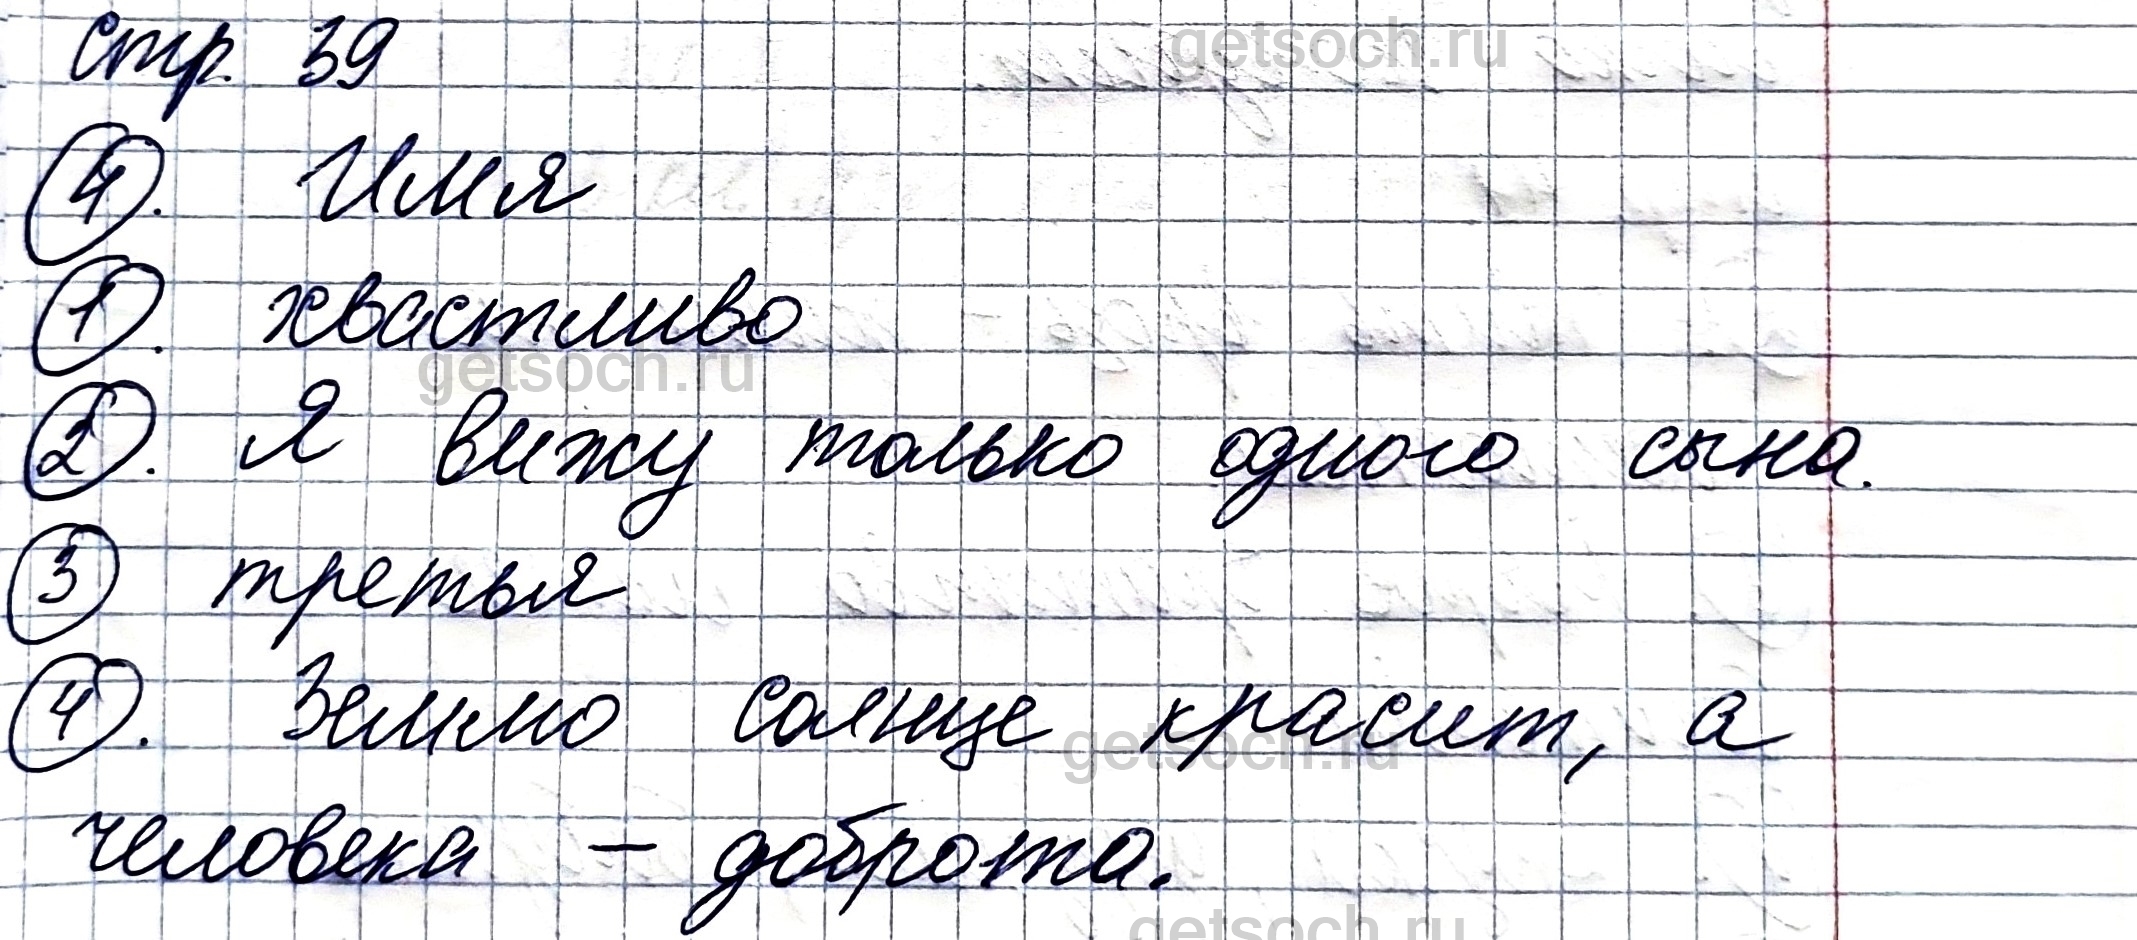 стр. 39
getsoch.ru
4. Имя
1. хвастливо
getsoch.ru
2. Я вижу только одного сына.
3 третья
4. Землю солнце красит, а
getsoch.ru
человека – доброта.
getsoch.ru